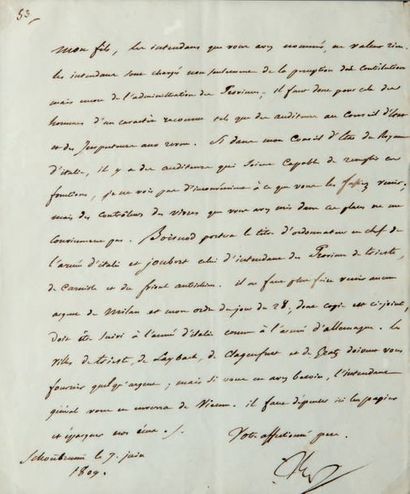 53
Mon fils, les intendans que vous avez nommés, ne valent rien.
les intendans sont chargés non seulement de la perception des contributions
mais encore de l'administration des Provinces, il faut donc pour cela des
hommes d'un caractère reconnu tels que des auditeurs au Conseil d'Etat
et des Inspecteurs aux revues. Si dans mon Conseil d'Etat du Royaume
d'italie, il y a des auditeurs qui soient capables de remplir ces
fonctions, je ne vois pas d'inconvénient à ce que vous les fassiez venir,
mais des contrôleurs des vivres que vous avez mis dans ces places ne me
conviennent pas. Boisnod portera le titre d'ordonnateur en chef de
l'armée d'italie et joubert celui d'intendant des Provinces de trieste,
de Carniole et du frioul autrichien. il ne faut plus faire venir aucun
argent de Milan et mon ordre du jour du 28, dont copie est ci-joint,
doit être suivi à l'armée d'italie comme à l'armée d'allemagne. Les
villes de trieste, de Laybach, de Clagenfurt et de Gratz doivent vous
fournir quelqu'argent; mais si vous en avez besoin, l'intendant
général vous en enverra de Vienne. il faut dépenser ici les papiers
et épargner nos écus.
Votre affectionné pere
Schoenbrunn le 7. juin
1809.